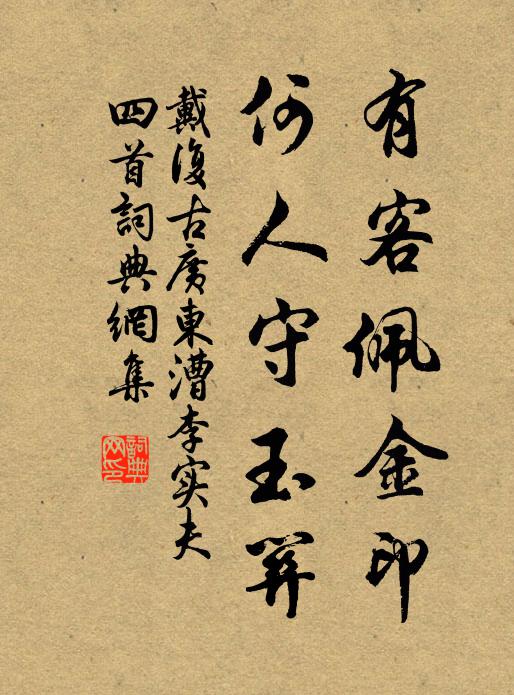 有客佩金印
何人守玉關
戴復古廣東漕李实夫
四首詞典網集
詞典网印